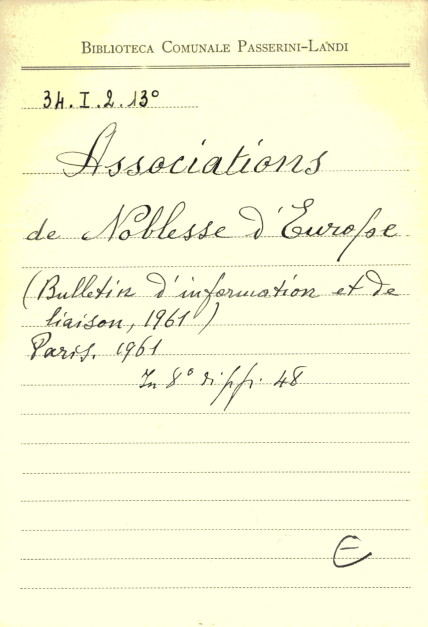 BIBLIOTECA COMUNALE PASSERINI-LANDI
34.I.2.13°
Associations
de Noblesse d'Europe
(Bulletin d'information et de
liaison, 1961)
Paris. 1961
In 8° di pp. 48
E